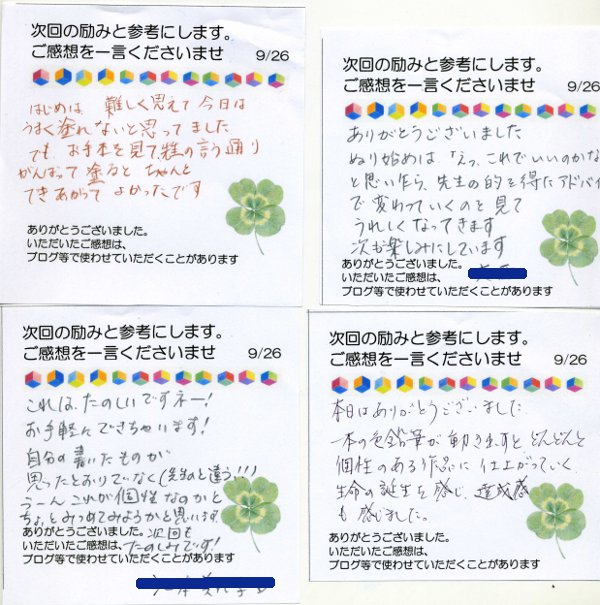 次回の励みと参考にします。
ご感想を一言くださいませ 9/26
はじめは、難しく思えて今日は
うまく塗れないと思ってました
でも、お手本を見て先生の言う通り
がんばって塗ると ちゃんと
できあがって よかったです
ありがとうございました。
いただいたご感想は、
ブログ等で使わせていただくことがあります
次回の励みと参考にします。
ご感想を一言くださいませ 9/26
ありがとうございました
ぬり始めは「えっ、これでいいのかな
と思い乍ら、先生の的を得たアドバイ
で変わっていくのを見て
うれしくなってきます
次も楽しみにしています
ありがとうございました。
いただいたご感想は、
ブログ等で使わせていただくことがあります
次回の励みと参考にします。
ご感想を一言くださいませ 9/26
これは、たのしいですネー!
お手軽にできちゃいます!
自分の書いたものが
思ったとおりでなく(先生のと違う!!)
うーん これが個性なのかと
ちょっとみつめてみようかと思います。
ありがとうございました。次回も
いただいたご感想は、たのしみです!
ブログ等で使わせていただくことがあります
次回の励みと参考にします。
ご感想を一言くださいませ 9/26
本日はありがとうございました
一本の色鉛筆が動き出すと どんどんと
個性のある作品に仕上がっていく。
生命の誕生を感じ、達成感
も感じました。
ありがとうございました。
いただいたご感想は、
ブログ等で使わせていただくことがあります